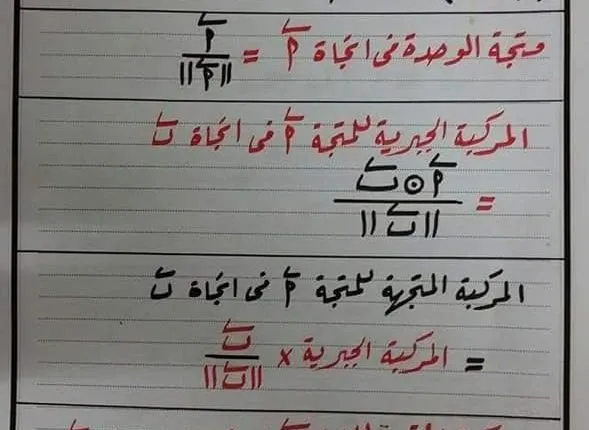 متجة الوحدة فى اتجاة م = م / ||م||
المركبة الجبرية للمتجة م فى اتجاة ن
= م ⊙ ن / ||ن||
المركبة المتجهة للمتجة م فى اتجاة ن
= المركبة الجبرية × ن / ||ن||